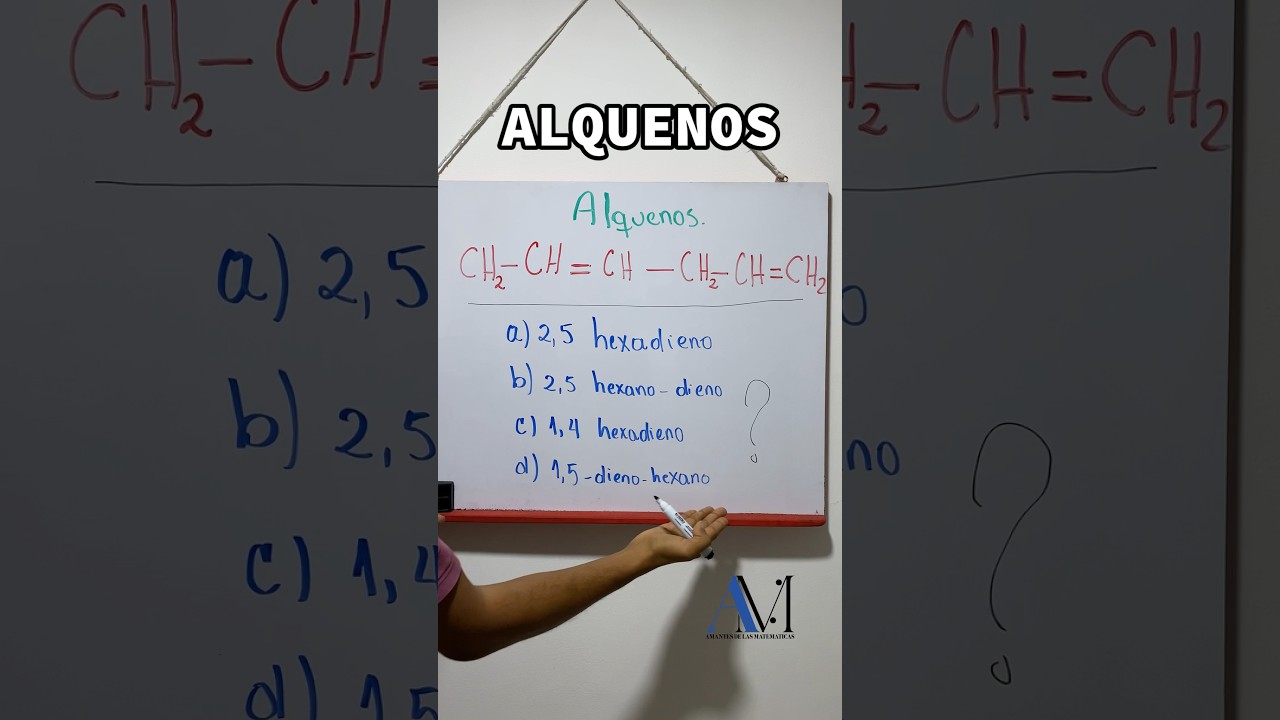 ALQUENOS
Alquenos.
CH₂-CH=CH-CH₂-CH=CH₂
a) 2,5 hexadieno
b) 2,5 hexano-dieno
c) 1,4 hexadieno
d) 1,5-dieno-hexano
?
AM
AMANTES DE LAS MATEMATICAS